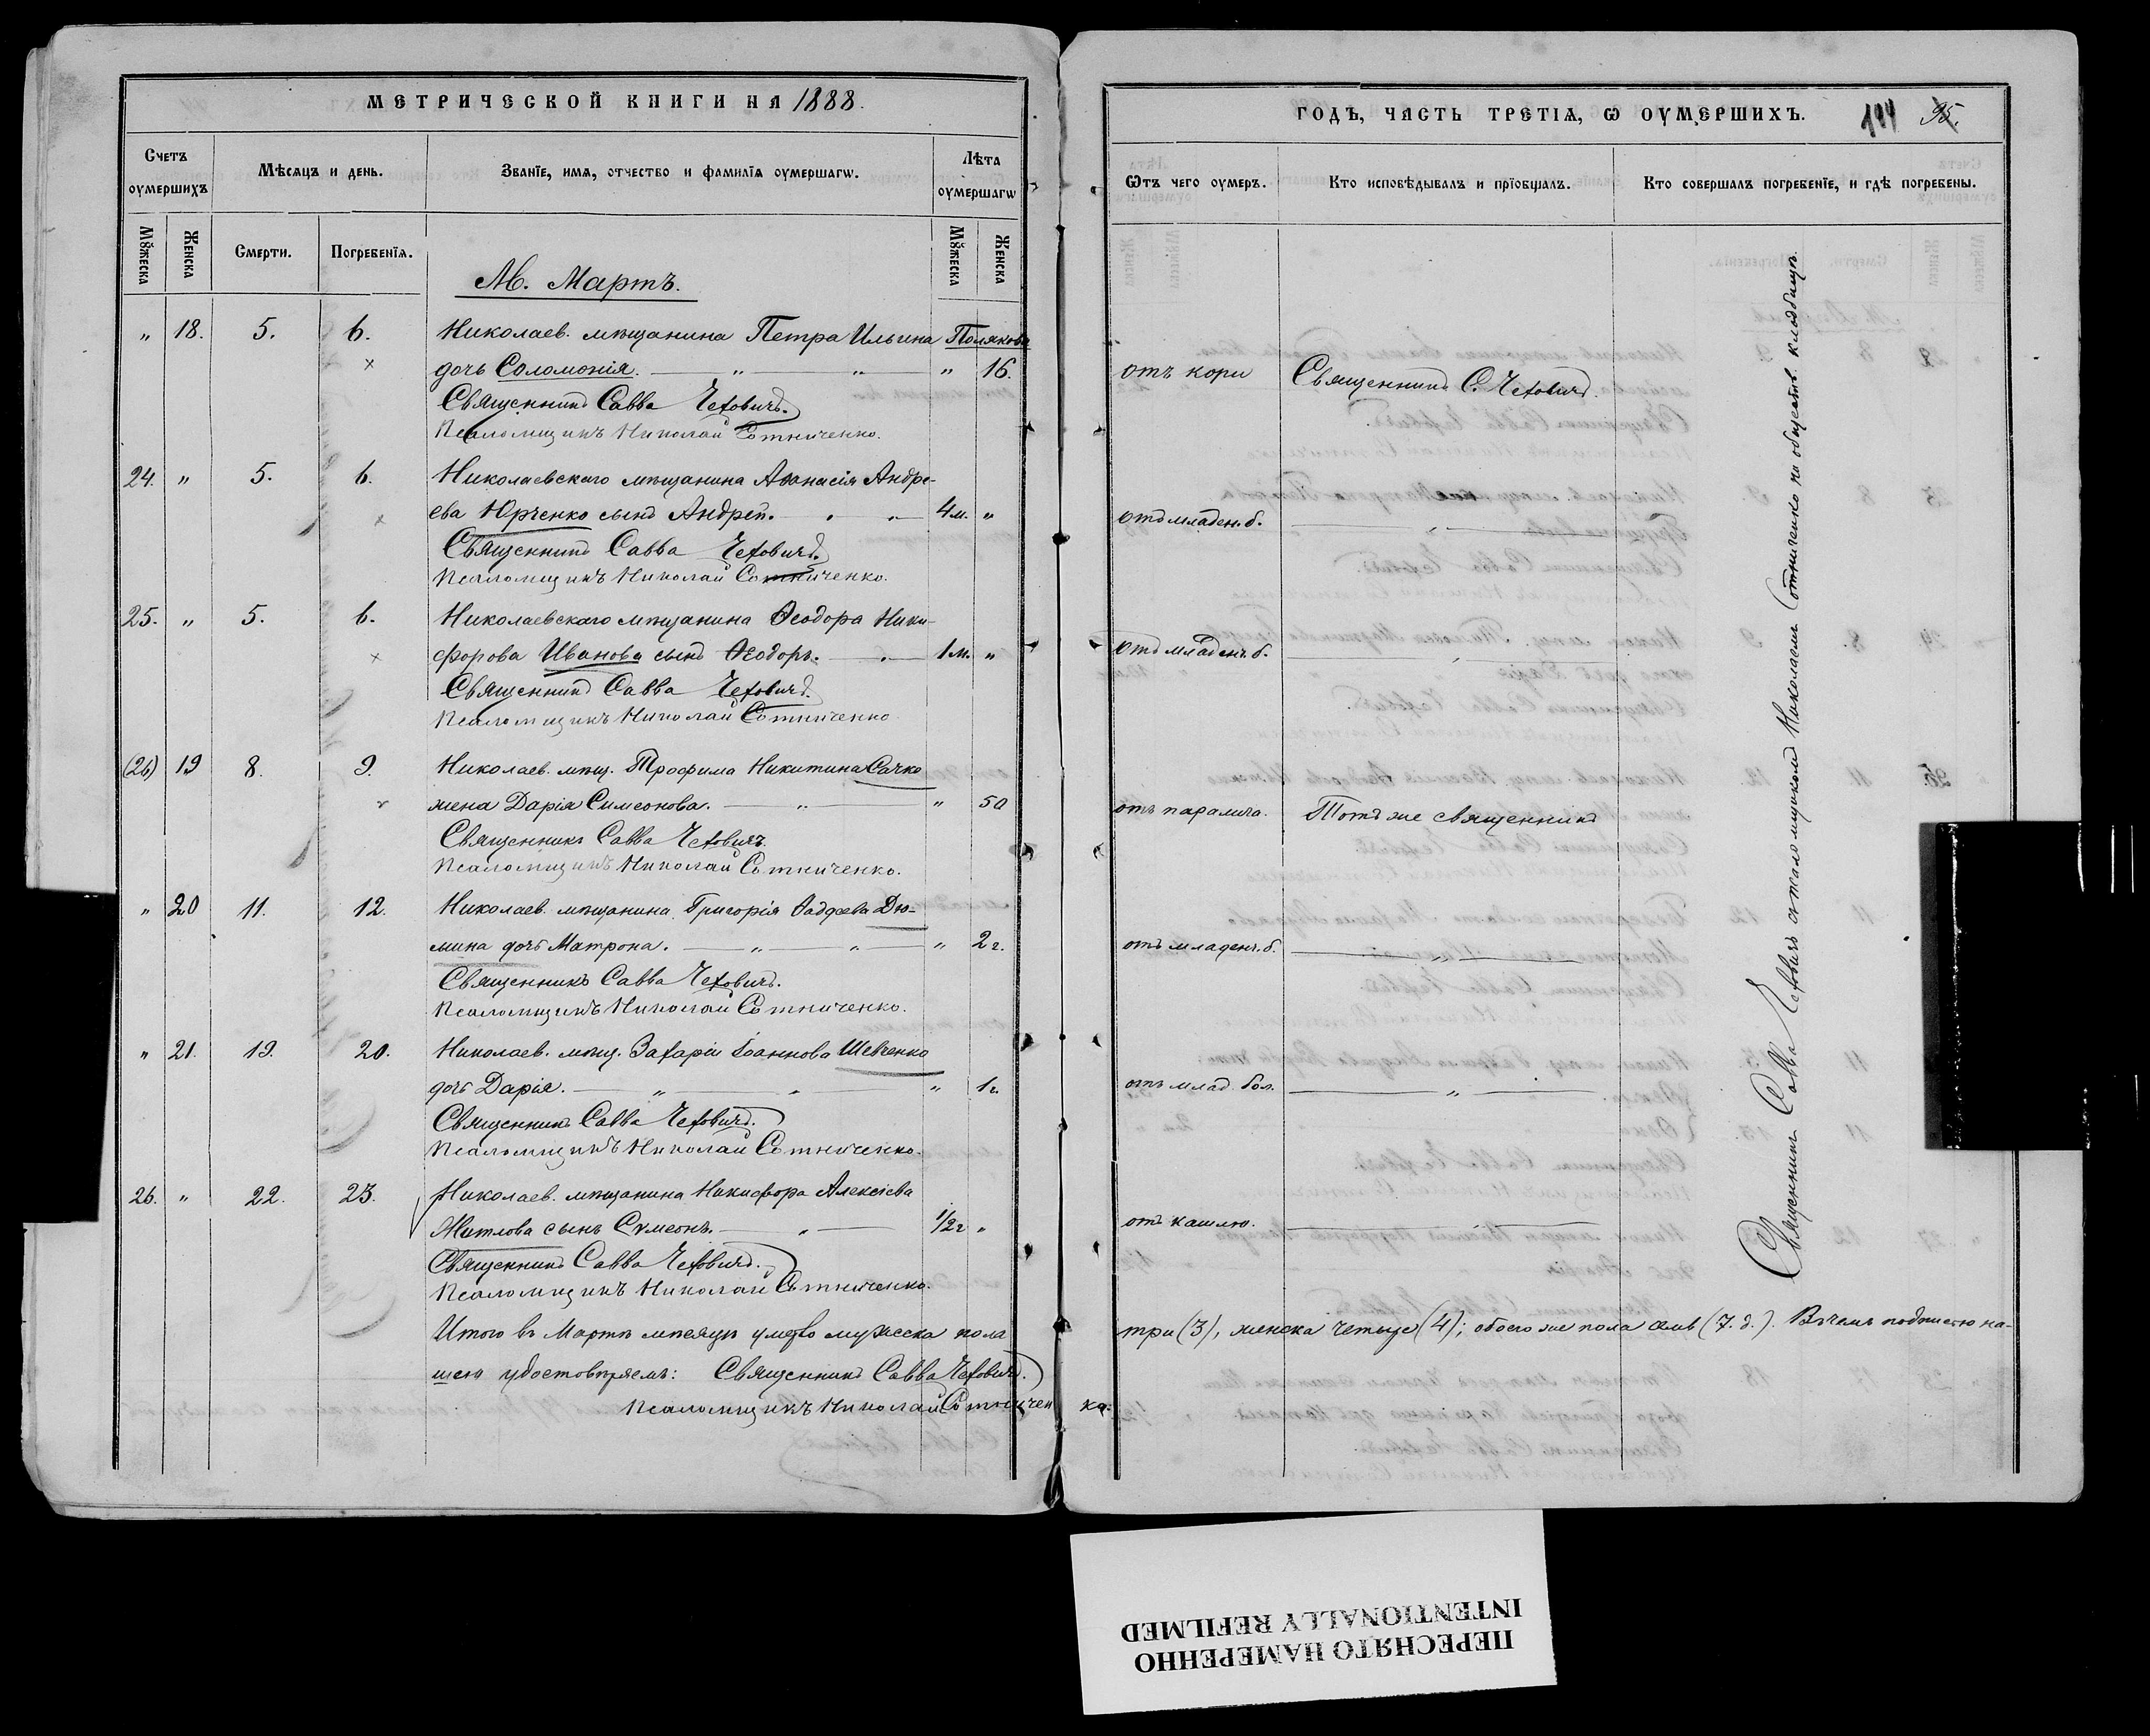 МЕТРИЧЕСКОЙ КНИГИ НА 1888.
Счетъ оумершихъ
Мѣсяцъ и день.
Званїе, имя, отчество и фамилїя оумершагѡ.
Лѣта оумершагѡ
Мꙋжеска
Женска
Смерти.
Погребенїя.
Мꙋжеска
Женска
М. Мартъ.
„ 18. 5. 6. Николаев. мѣщанина Петра Ильина Полякова
дочь Соломонія. „ „ „ 16.
Священникъ Савва Чехович.
Псаломщикъ Николай Сотниченко.
24. „ 5. 6. Николаевскаго мѣщанина Аѳанасія Андре-
ева Юрченко сынъ Андрей. 4 м. „
Священникъ Савва Чеховичъ.
Псаломщикъ Николай Сотниченко.
25. „ 5. 6. Николаевскаго мѣщанина Ѳеодора Ники-
форова Иванова сынъ Ѳеодоръ. 1 м. „
Священникъ Савва Чеховичъ.
Псаломщикъ Николай Сотниченко
(26) 19 8. 9. Николаев. мѣщ. Трофима Никитина Сачко
жена Дарія Симеонова. „ „ 50
Священникъ Савва Чеховичъ.
Псаломщикъ Николай Сотниченко.
„ 20 11. 12. Николаев. мѣщанина Григорія Ѳаддеева Дю-
мина дочь Матрона. „ „ „ 2 г.
Священникъ Савва Чеховичъ.
Псаломщикъ Николай Сотниченко.
„ 21. 19. 20. Николаев. мѣщ. Захаріи Іоаннова Шевченко
дочь Дарія. „ „ „ 1 г.
Священникъ Савва Чеховичъ.
Псаломщикъ Николай Сотниченко.
26. „ 22. 23. Николаев. мѣщанина Никифора Алексіева
сынъ Сѵмеонъ. „ 1/2 г „
Священникъ Савва Чеховичъ.
Псаломщикъ Николай Сотниченко.
Итого въ Мартѣ мѣсяцѣ умерло мужеска пола
шею удостовѣряемъ: Священникъ Савва Чеховичъ.
Псаломщикъ Николай Сотниченко.
ГОДЪ, ЧАСТЬ ТРЕТІѦ, Ѡ ОУМЕРШИХЪ.
95.
Ѿтъ чего оумеръ.
Кто исповѣдывалъ и прїобщалъ.
Кто совершалъ погребенїе, и гдѣ погребены.
отъ кори Священникъ С. Чеховичъ.
отъ младен. б. „
отъ младенч. б. „
отъ паралича. Тотъ же священникъ
отъ младенч. б. „
отъ млад. бол. „
отъ кашлю. „
Священникъ Савва Чеховичъ съ псаломщикомъ Николаемъ Сотниченко на обществ. кладбищѣ.
три (3), женска четыре (4); обоего же пола семь (7. д.). Въ чемъ подписью на-
ПЕРЕСНЯТО НАМЕРЕННО
INTENTIONALLY REFILMED